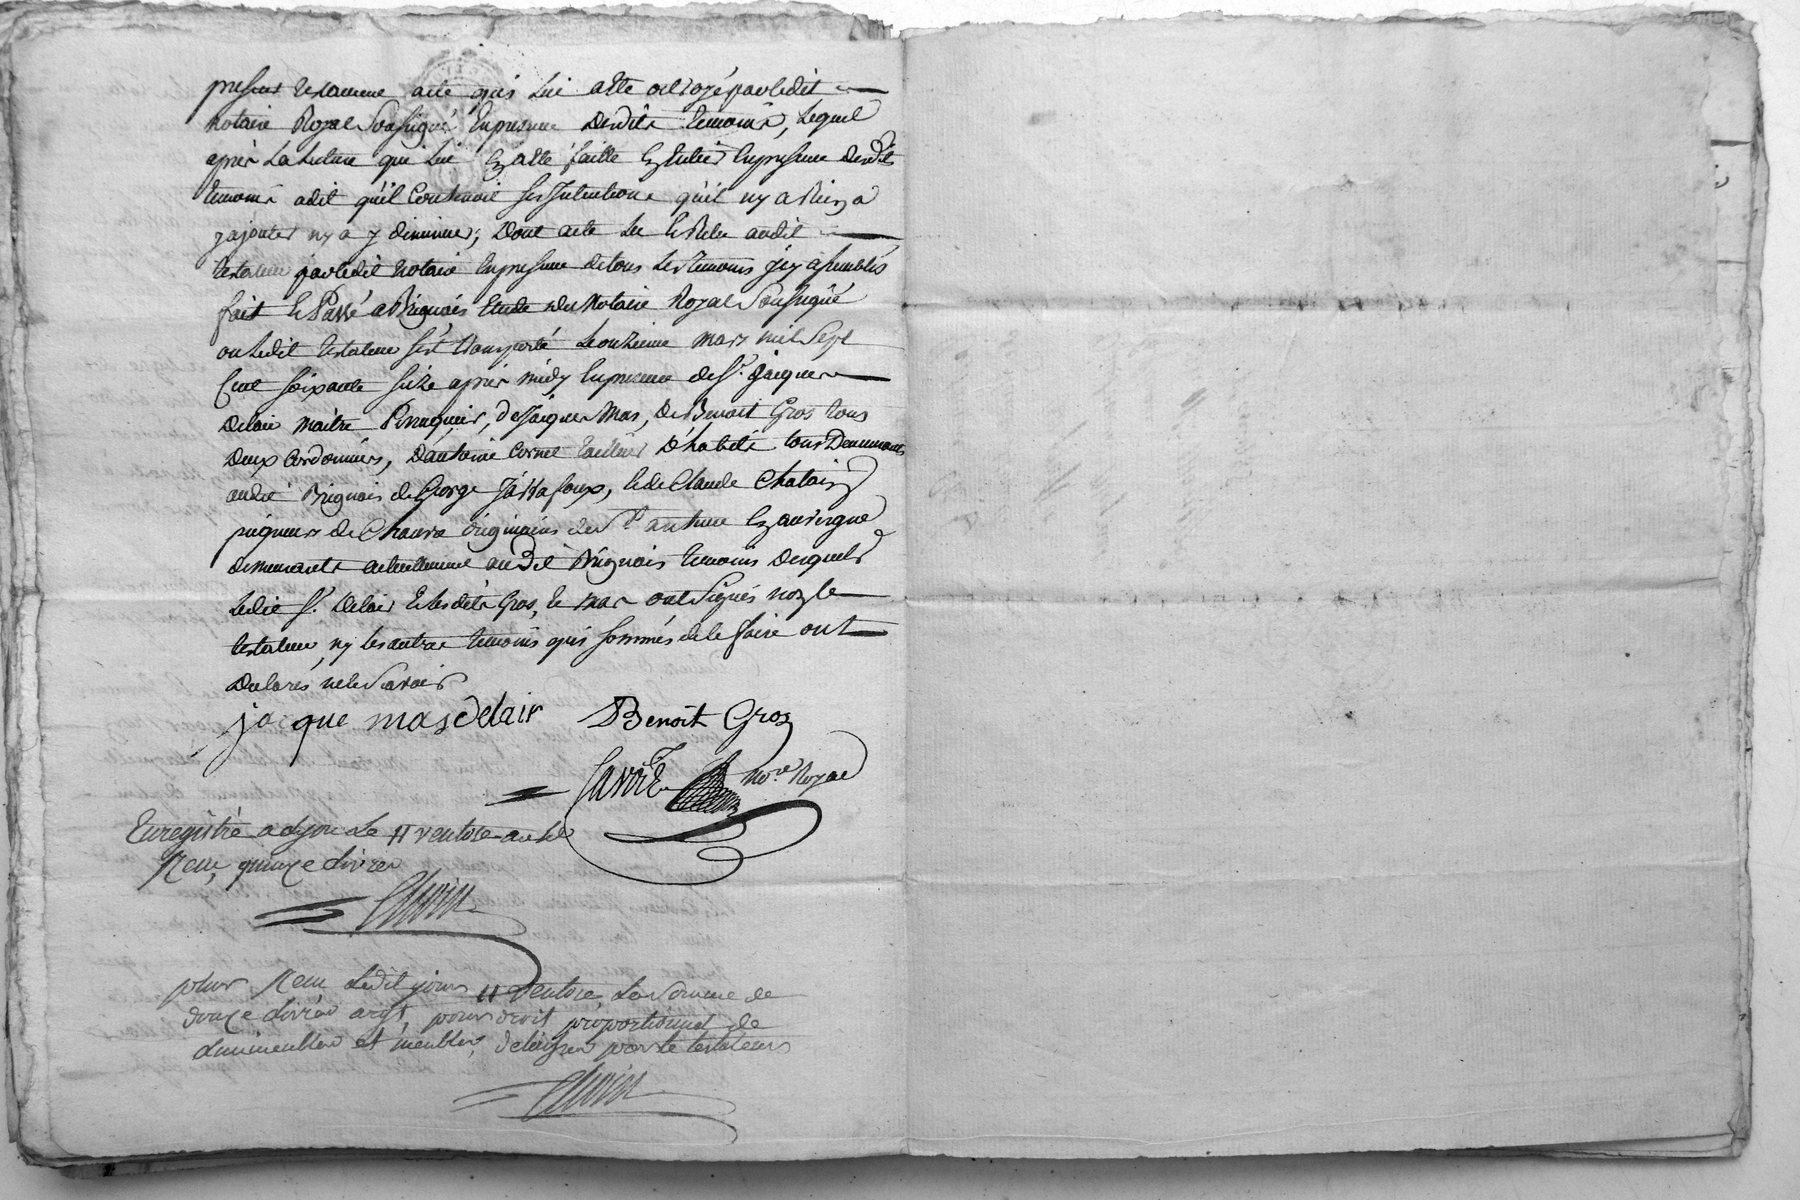 present testament acte qui luy a été octroyé par ledit
notaire Royal Soussigné En presence desdits temoins, Lequel
apres La Lecture qui lui En a été faitte En Entier En presence desdits
temoins a dit qu'il Contenoit ses Intentions qu'il ny a Rien a
y ajouter ny a y diminuer, Dont acte Lu Et Relu audit
testateur par ledit notaire En presence de tous Les temoins icy assemblés
fait Et Passé a Brignais Etude du Notaire Royal Soussigné
ou Ledit testateur s'est transporté Le onzieme mars mil Sept
Cent soixante seize apres midy En presence de Sr. Jacques
Delair maitre Perruquier, de Jacques Mas, De Benoit Gros tous
Deux Cordonniers, D'antoine Cornet tailleur D'habits tous Demeurants
audit Brignais de George, Et de Claude Chalais
peigneurs de Chanvre originaires de St. En auvergne
demeurants actuellement audit Brignais temoins desquels
Ledit Sr. Delair Et lesdits Gros, Et Mas ont Signés non le
testateur, ny Les autres temoins qui sommés de le faire ont
Declarés ne le Savoir
jacque mas delair Benoit Gros
nore. Royal
Enregistré a Lyon Le 11 ventose an
Reçu quinze Livres
plus Reçu Ledit jour 11 ventose La Somme de
douze Livres pour droit proportionnel de
immeubles et meubles delaissés par le testateur